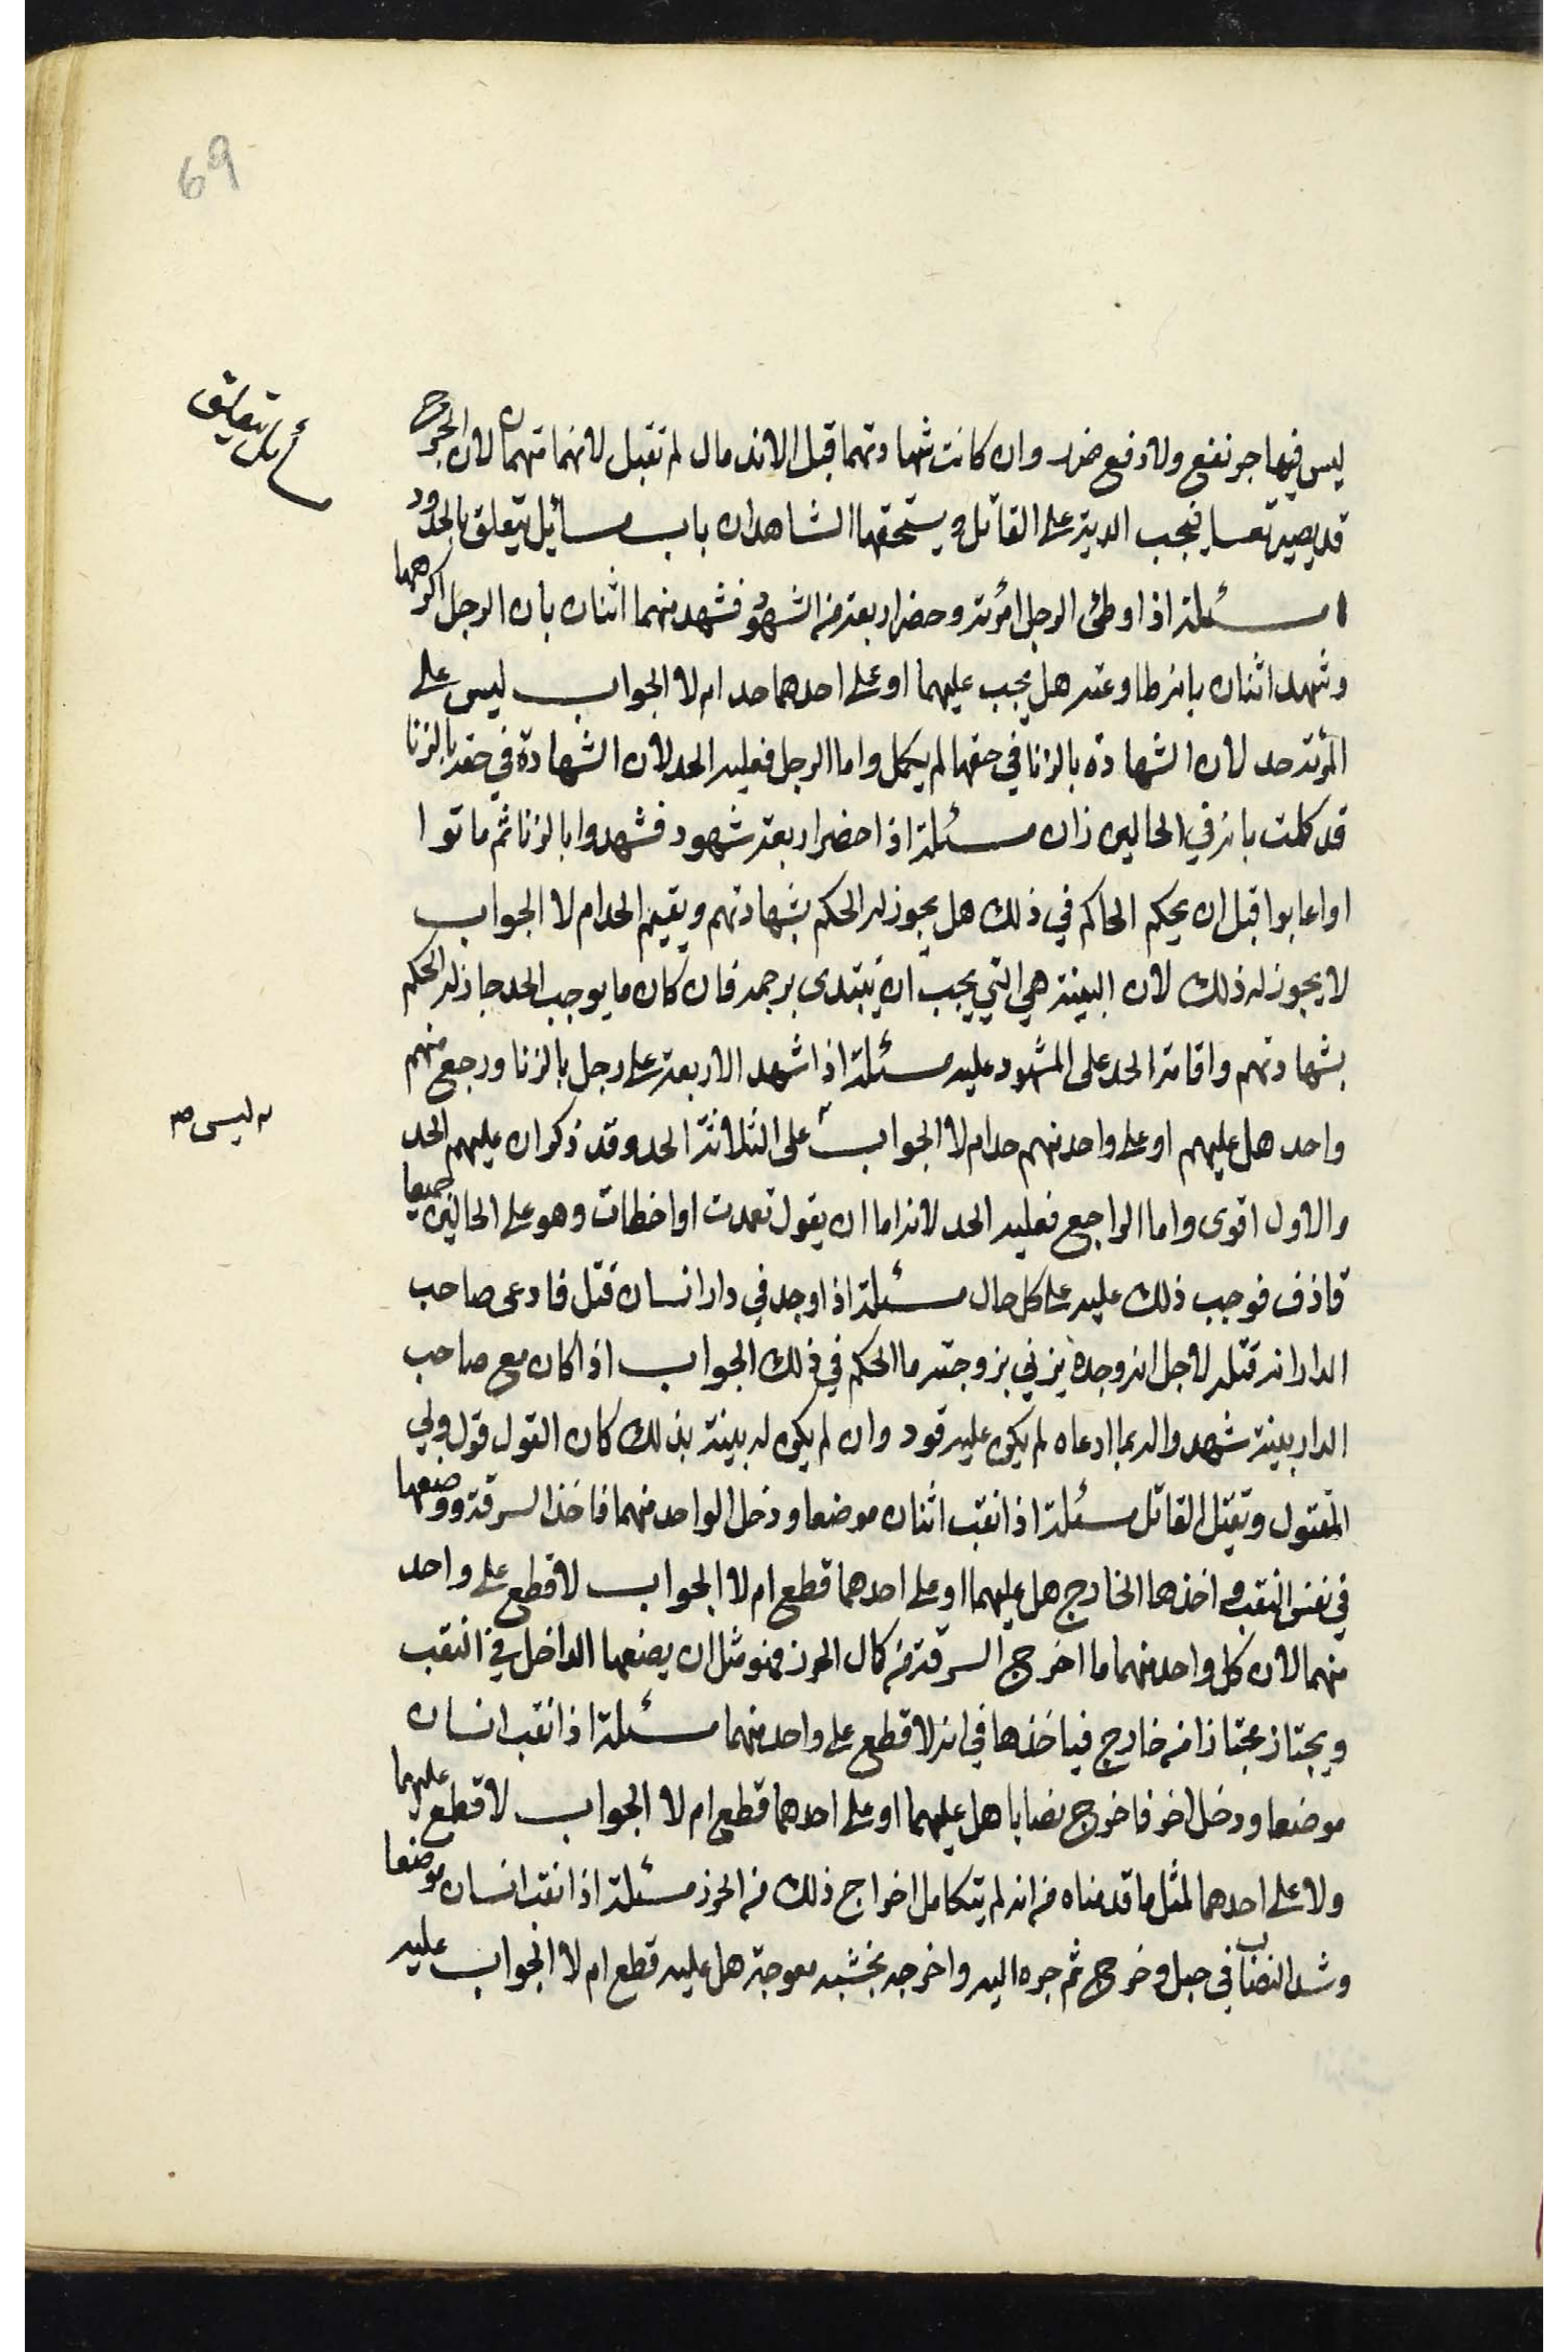 69
مسائل يتعلق
ليس فيها جر نفع ولا دفع ضرر وان كانت شهادتهما قبل الاندمال لم تقبل لانهما متهمان لان الجرح
قد يصير نفسا فيجب الدية على القاتل ويستحقها الشاهدان باب مسائل يتعلق بالحدود
مسئلة اذا وطئ الرجل امرئته وحضر اربعة من الشهود فشهد منهما اثنان بان الرجل اكرهها
وشهد اثنان بانه طاوعته هل يجب عليهما او على احدهما حد ام لا الجواب ليس على
المرئة حد لان الشهادة بالزنا في حقها لم يكمل واما الرجل فعليه الحد لان الشهادة في حقه بالزنا
قد كملت بانه في الحالين زان مسئلة اذا حضر اربعة شهود فشهدوا بالزنا ثم ماتوا
او اعابوا قبل ان يحكم الحاكم في ذلك هل يجوز له الحكم بشهادتهم ويقيم الحد ام لا الجواب
لا يجوز له ذلك لان البينة هي التي يجب ان يبتدى برجمه فان كان ما يوجب الحد جاز له الحكم
بشهادتهم واقامة الحد على المشهود عليه مسئلة اذا شهد الاربعة على رجل بالزنا ورجع منهم
واحد هل عليهم او على واحد منهم حد ام لا الجواب على الثلاثة الحد وقد ذكر ان عليهم الحد
ليس صه
والاول اقوى واما الراجع فعليه الحد لانه اما ان يقول تعمدت او اخطات وهو على الحالين جميعا
قاذف فوجب ذلك عليه على كل حال مسئلة اذا وجد في دار انسان قتل فادعى صاحب
الدار انه قتله لاجل انه وجده يزني بزوجته ما الحكم في ذلك الجواب اذا كان مع صاحب
الدار بينة شهدوا له بما ادعاه لم يكن عليه قود وان لم يكن له بينة بذلك كان القول قول ولي
المقتول وتقتل القاتل مسئلة اذا نقب اثنان موضعا ودخل الواحد منهما فاخذ السرقة ووضعها
في نفس النقب واخذها الخارج هل عليهما او على احدهما قطع ام لا الجواب لا قطع على واحد
منهما لان كل واحد منهما ما اخرج السرقة من كال الحرز فهو مثل ان يضعها الداخل في النقب
ويجتاز مجتازا من خارج فياخذها في انه لا قطع على واحد منهما مسئلة اذا نقب انسان
موضعا ودخل اخر فاخرج نصابا هل عليهما او على احدهما قطع ام لا الجواب لا قطع عليهما
ولا على احدهما لمثل ما قدمناه من انه لم يتكامل اخراج ذلك من الحرز مسئلة اذا نقب انسان موضعا
وشد النصاب في حبل وخرج ثم جره اليه واخرجه بخشبه معوجة هل عليه قطع ام لا الجواب عليه